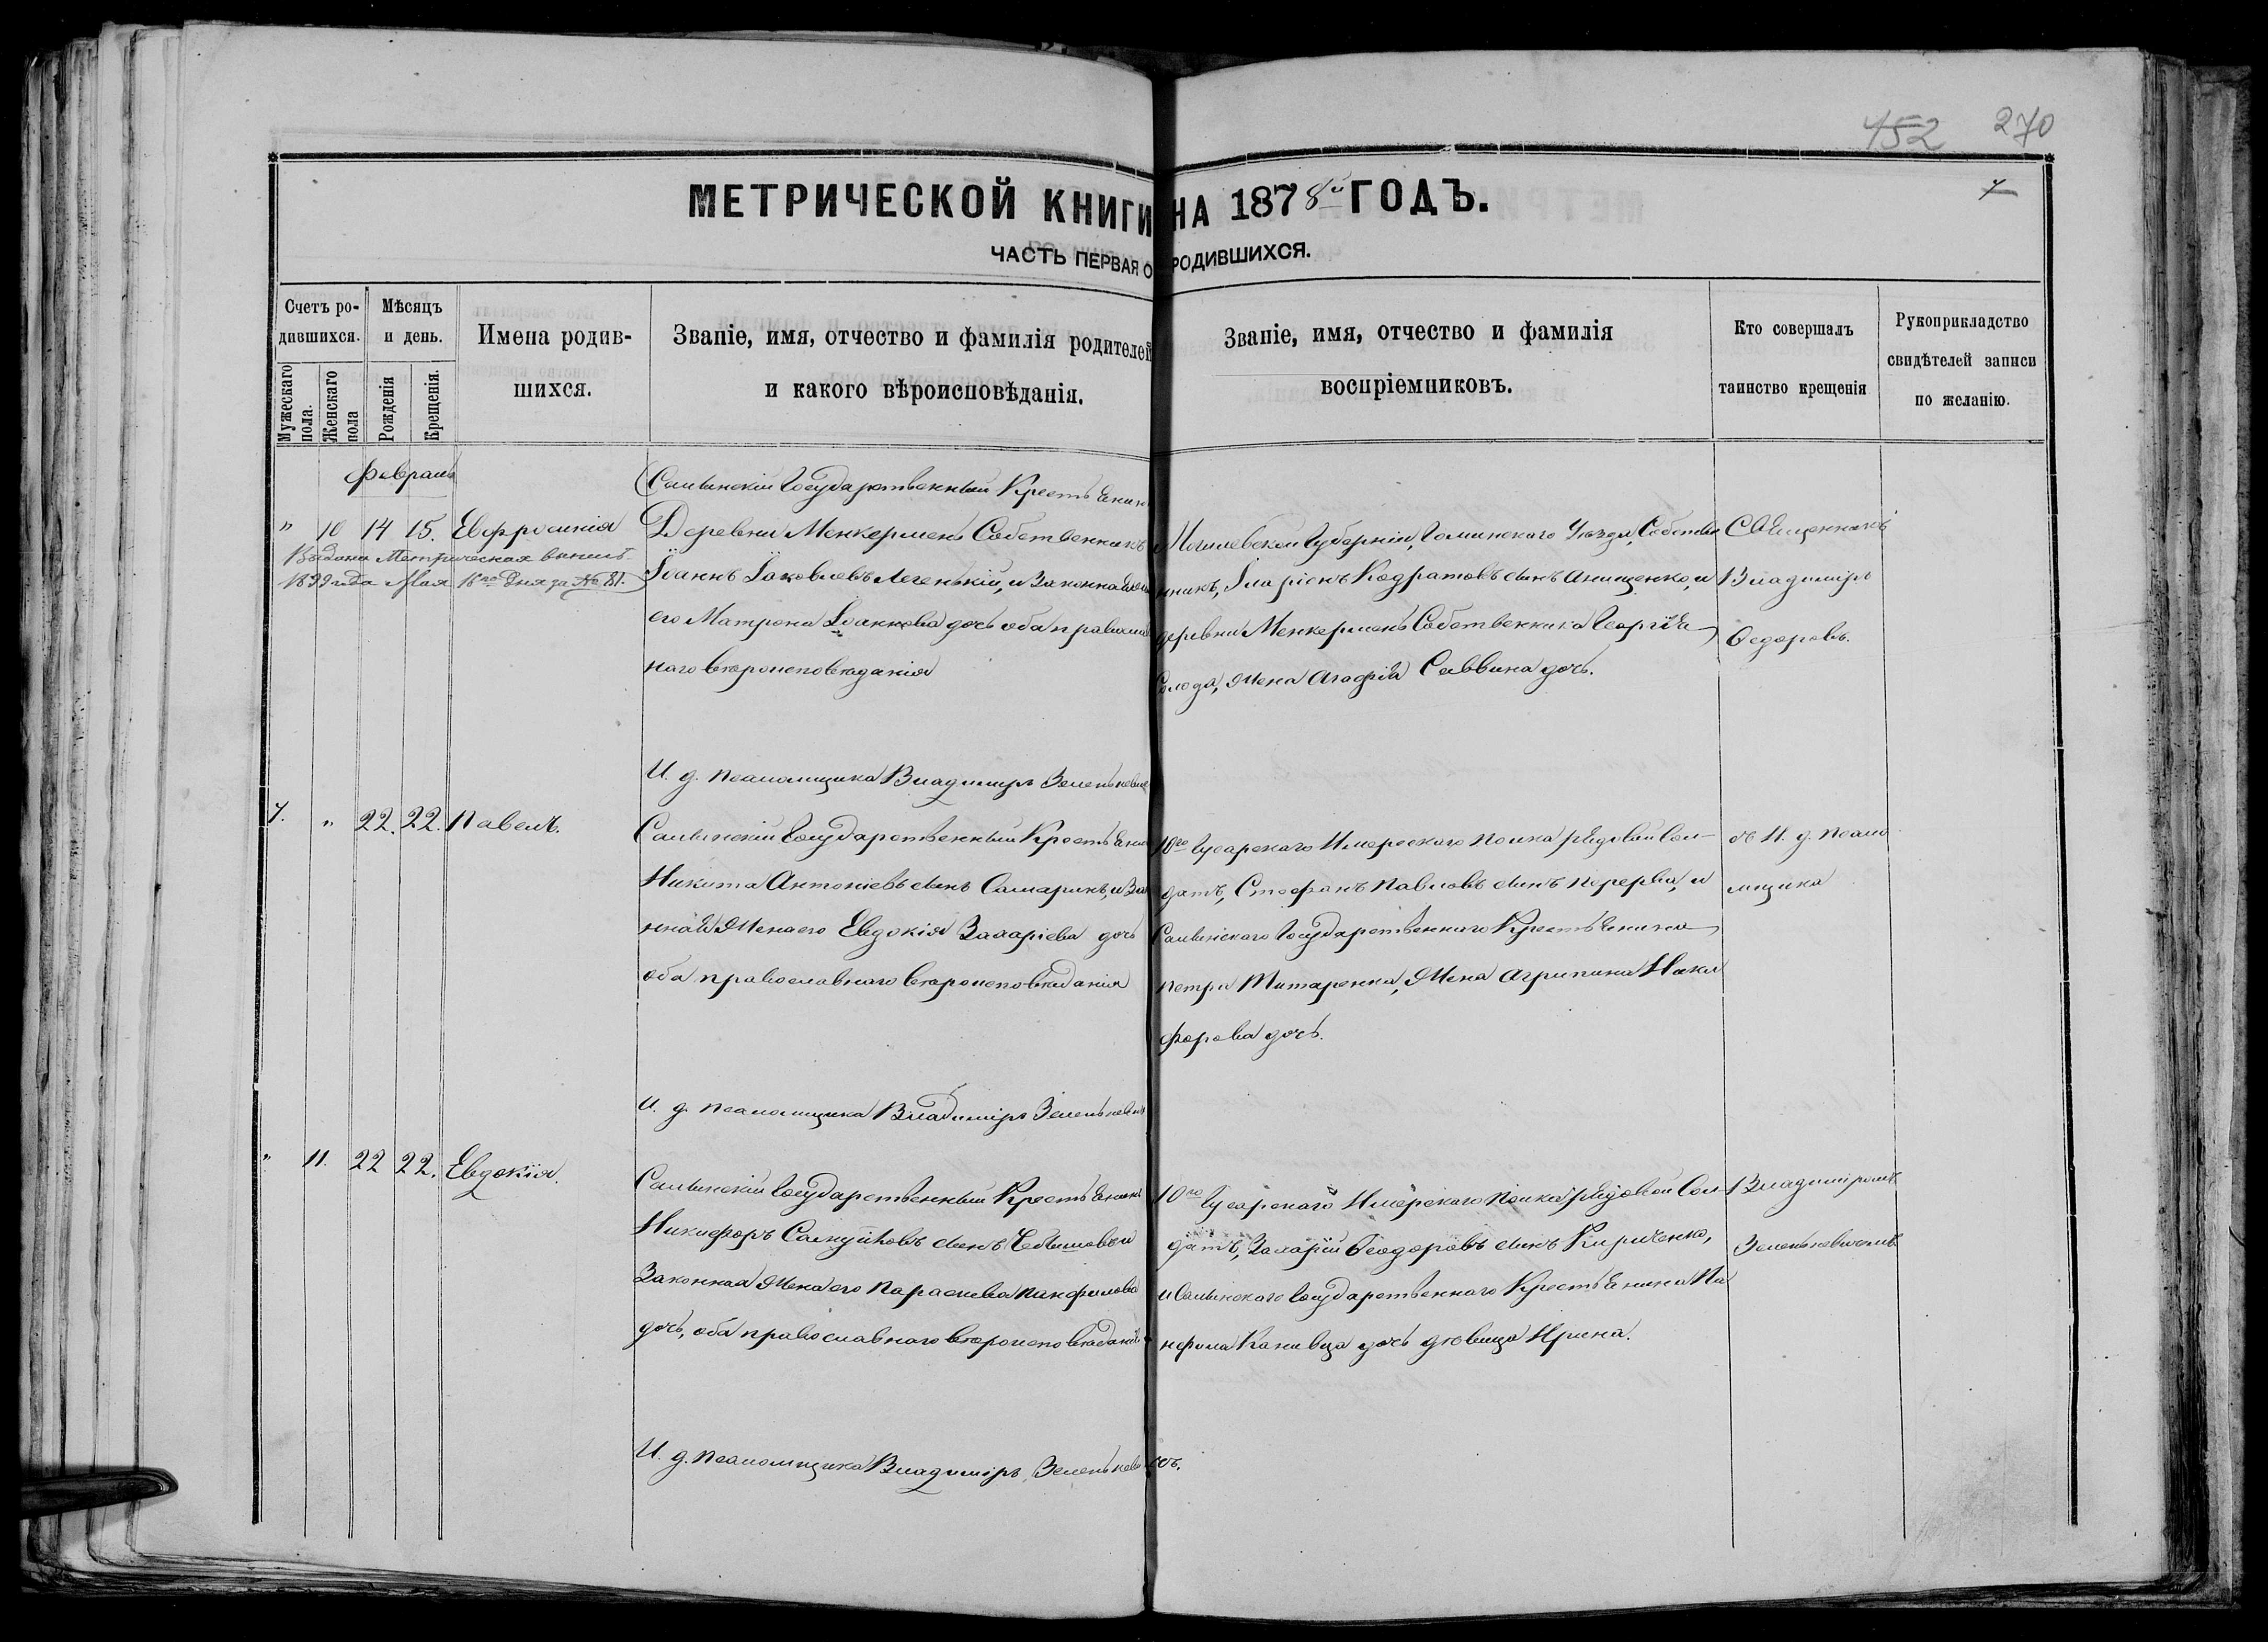 452 270
МЕТРИЧЕСКОЙ КНИГИ НА 1878й ГОДЪ.
7
ЧАСТЬ ПЕРВАЯ О РОДИВШИХСЯ.
Счетъ ро-
дившихся.
Мужескаго
пола.
Женскаго
пола
Мѣсяцъ
и день.
Рожденія
Крещенія.
Имена родив-
шихся.
Званіе, имя, отчество и фамилія родителей
и какого вѣроисповѣданія.
Званіе, имя, отчество и фамилія
воспріемниковъ.
Кто совершалъ
таинство крещенія
Рукоприкладство
свидѣтелей записи
по желанію.
Февраль
" 10 14 15. Евфросинія
Выдана Метрическая выпись
1899 года Мая 16го Дня за № 81.
Государственный Крестьянинъ
Деревни Менкермень Собственникъ
Іоаннъ Іаковлевъ Легенькій, и Законная жена
его Матрона Іоаннова дочь оба православ
наго вѣроисповѣданія
Могилевской Губерніи, Гоминского Уѣзда, Собстве
нникъ, Иларіонъ Кодратовъ сынъ Анищенко, и
деревни Менкермень Собственника Георгія
Солода, жена Агафія Саввина дочь.
Священникъ
Владиміръ
Федоровъ.
И. д. псаломщика Владимиръ Зеленькевич
7. " 22. 22. Павелъ.
Государственный Крестьянин
Никита Антоніевъ сынъ Самаринъ, и Зак
нная жена его Евдокія Захаріева дочь
оба православнаго вѣроисповѣданія
10го Гусарскаго полка рядовой Сол-
датъ, Стефанъ Павловъ сынъ Перерва, и
Государственнаго Крестьянина
Петра Титаренка, жена Агрипина Ники
форова дочь.
съ И. д. псало
мщика
И. д. псаломщика Владиміръ Зеленькевич
" 11. 22 22. Евдокія.
Государственный Крестьянинъ
Никифоръ сынъ и
Законная жена его Параскева Панфилова
дочь, оба православнаго вѣроисповѣданія
10го Гусарскаго полка рядовой Сол-
датъ, Захарій Феодоровъ сынъ Кириченко,
и Государственнаго Крестьянина Па
нфила Канивца дочь дѣвица Ирина.
Владиміромъ
Зеленькевичемъ
И. д. псаломщика Владиміръ Зеленькевичъ.